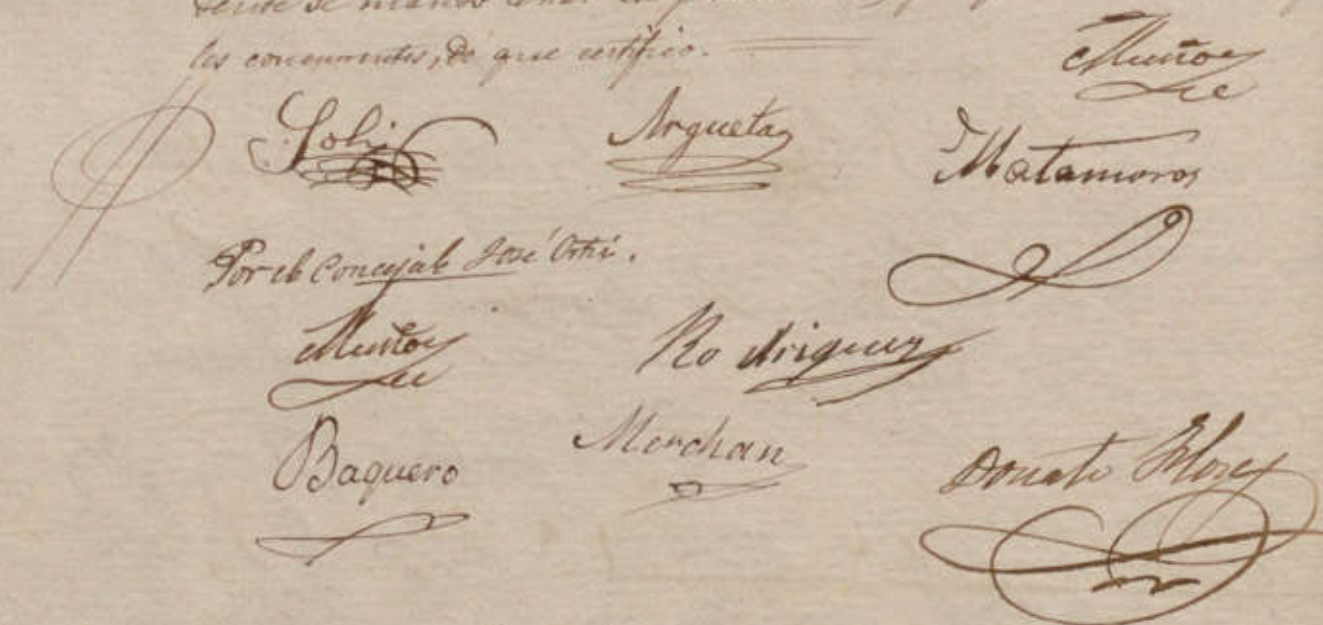 los concurrentes, de que certifico.
Muñoz
Solis Argueta Matamoros
Por el Concejal José Ortiz.
Muñoz Rodriguez
Baquero Merchan Donato Florez